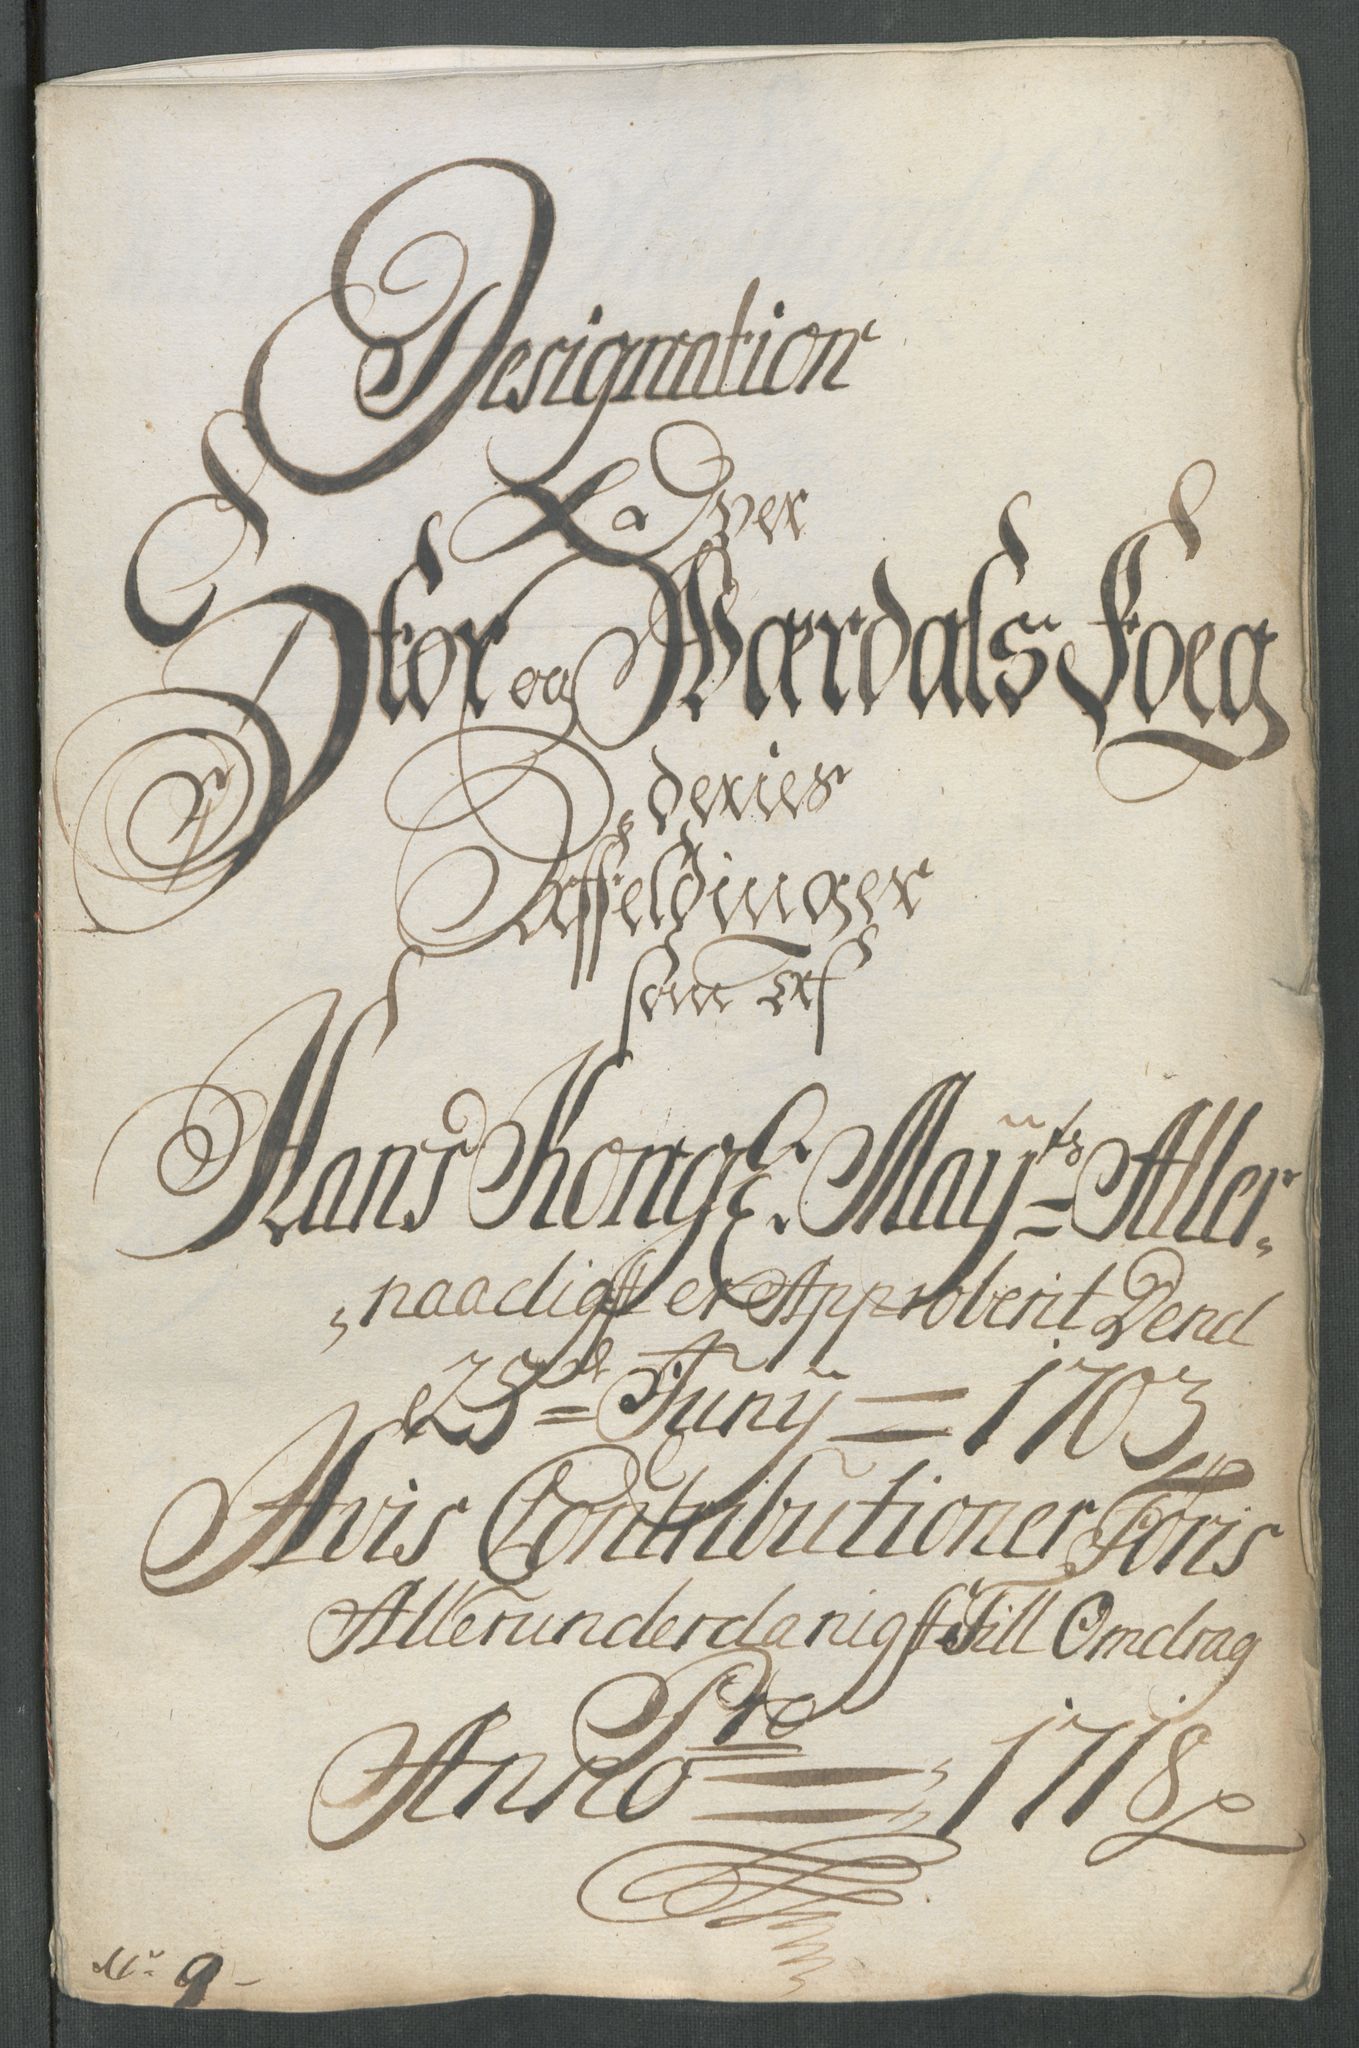 Designation
Over
Stør og Wærdals Foeg
deries
Affældinger
som Ef
Hans Kongl: May:ts Aller„
„naadigst er Approberit Dend
23de Junij = 1703
Hvis Contributioner Føris
Allerunderdanigst Till Omdrag
Pro
Anno = 1718
No 9